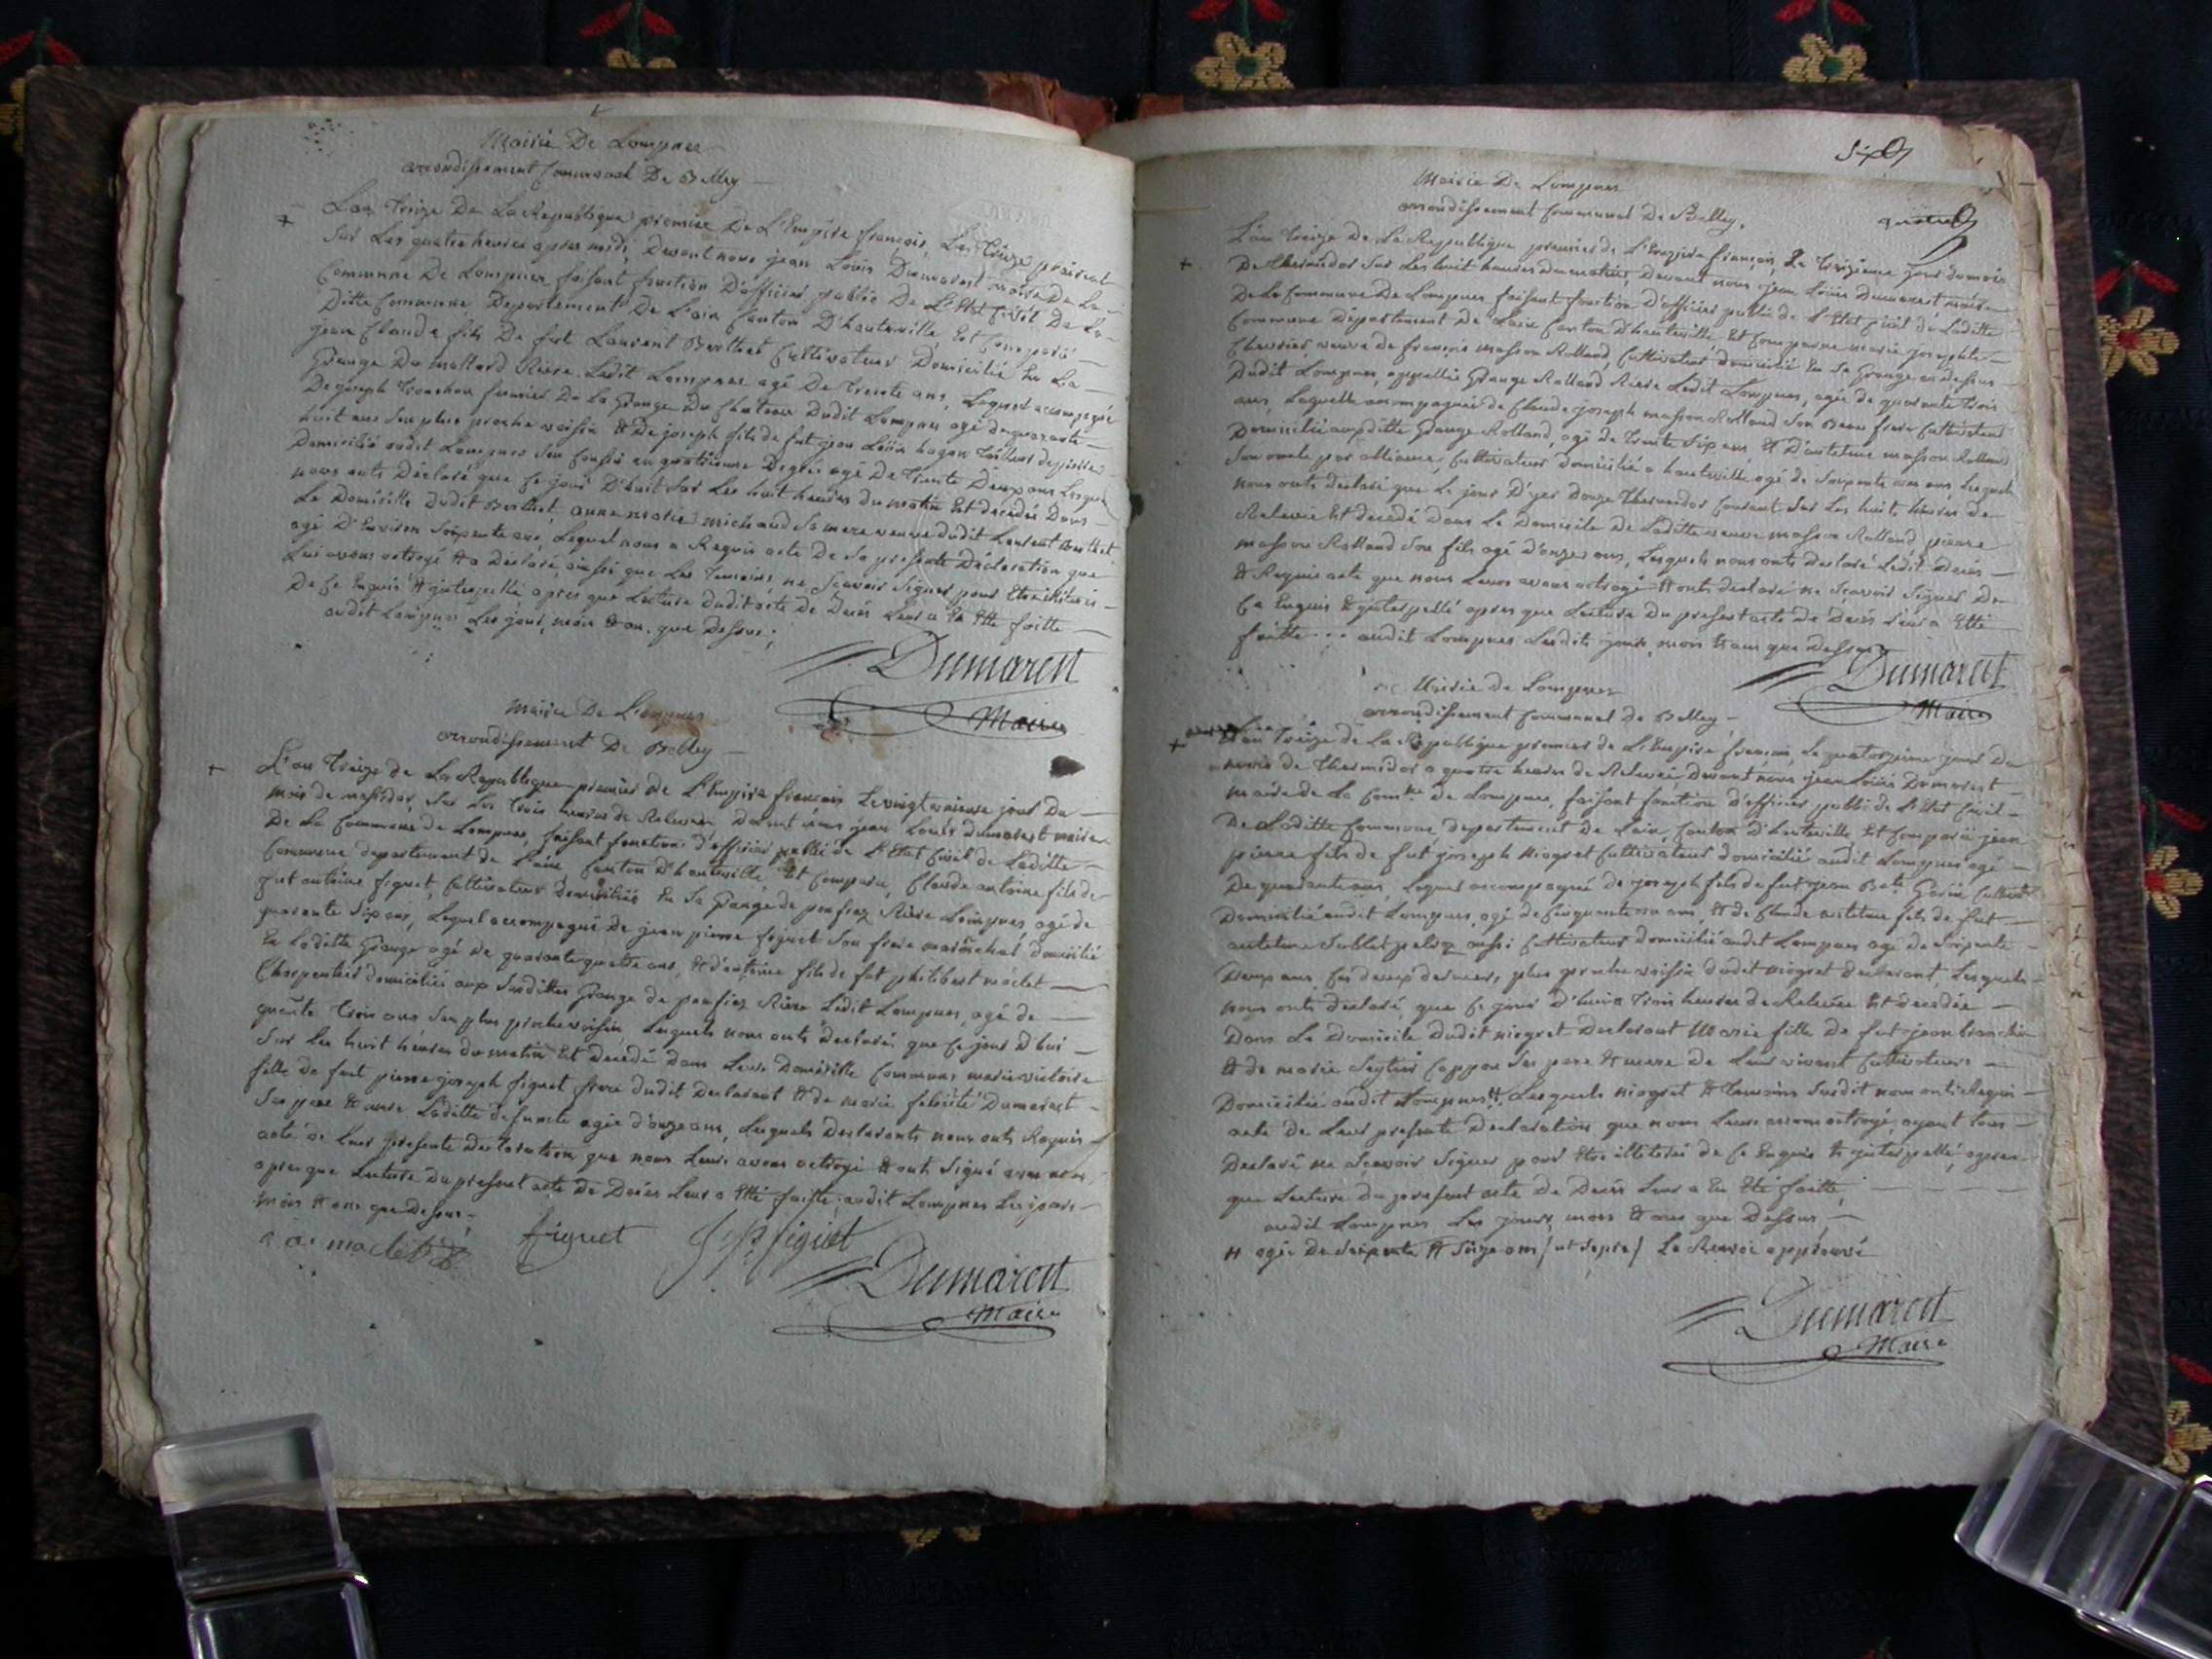 Mairie De Lompnes
arrondissement Communal De Belley
L'an treize De La Republique premier De L'Empire françois, Les treize prairial
Sur Les quatre heures apres midi, Devant nous jean Louis Dumarest maire De La
Commune De Lompnes faisant fonction D'officier public De L'Etat Civil De La
Ditte Commune Departement De L'ain Canton D'hauteville, Est Comparu
jean Claude fils De fut Laurent Berthet Cultivateur Domicilié En La
Grange Du mollard Riere Ledit Lompnes agé De trente ans, Lequel accompagné
De joseph fermier De La Grange Du Chateau Dudit Lompnes agé de quarante
huit ans Son plus proche voisin & De joseph fils de fut jean Louis tailleur de pierre
Domicilié audit Lompnes Son Cousin au quatrieme Degré agé De trente Deux ans Lesquels
nous onts Déclaré que Ce jour D'huit Sur Les huit heures du matin Est decedée Dans
Le Domicille Dudit Berthet, anne marie michaud Sa mere veuve dudit Laurent Berthet
agé D'Environ Soixante ans, Lequel nous a Requis acte De Sa presente Déclaration que
Lui avons octroyé & a Declaré, ainsi que Les temoins, ne Scavoir Signer pour Etre illiterés
De Ce Enquis & interpellé, apres que Lecture Dudit acte de Deces Leur a En Etté faitte
audit Lompnes Les jour, mois & an que Dessus;
Dumarest
Maire
Mairie De Lompnes
arrondissement De Belley
L'an treize de La Republique premier de L'Empire francois Le vingt jour Du
mois de messidor, Sur Les trois heures de Relevée Devant nous jean Louis dumarest maire
De La Commune de Lompnes, faisant fonction d'officier public de L'Etat Civil de Laditte
Commune departement de L'ain Canton D'hauteville Est Comparu, Claude antoine fils de
fut antoine figuet, Cultivateur domicilié En Sa Grange de Riere Lompnes, agé de
quarante Six ans, Lequel accompagné de jean pierre figuet Son frere marechal domicilié
En Laditte Grange agé de quarante quatre ans, & d'antoine fils de fut philibert maclet
Charpentier domicilié aux Susdittes Grange de Riere Ledit Lompnes, agé de
trois ans Son plus proche voisin, Lesquels nous onts declarés que Ce jour D'hui
Sur Les huit heures du matin Est Decedé Dans Leur Domicille Commun marie victoire
fille de fut pierre joseph figuet frere dudit Declarant & de marie felicité Dumarest
Ses pere & mere Laditte defuncte agée d'onze ans, Lesquels Declarants nous onts Requis
acte de Leur presente declaration que nous Leurs avons octroyé & onts Signé avec nous
apres que Lecture du present acte de Deces Leur a Etté faitte; audit Lompnes Les jours
mois & ans que Dessus;
maclet figuet J P figuet
Dumarest
Maire
Six
Mairie De Lompnes
arrondissement Communal De Belley.
L'an treize de La Republique premier de L'Empire françois, Le treizieme jour du mois
De thermidor Sur Les huit heures du matin, Devant nous jean Louis Dumarest maire
De La Commune De Lompnes faisant fonction d'officier public de L'Etat Civil de Laditte
Commune departement De L'ain Canton D'hauteville Est Comparue marie josephte
Chevrier veuve de francois masson Rolland, Cultivateur domicilié En Sa Grange au dessus
Dudit Lompnes, appellée Grange Rolland Riere Ledit Lompnes, agée de quarante trois
ans, Laquelle accompagnée de Claude joseph masson Rolland Son Beau frere Cultivateur
Domicilié auxditte Grange Rolland, agé de trente Six ans & D'antelme masson Rolland
Son oncle par alliance, Cultivateur domicilié a hauteville agé de Soixante ans, Lesquels
nous onts declaré que Le jour D'yer Douze thermidor Courant Sur Les huit heures de
Relevée Est decedé dans Le Domicile De Laditte veuve masson Rolland pierre
masson Rolland Son fils agé d'onze ans, Lesquels nous onts declaré Ledit Deces
& Requis acte que nous Leurs avons octroyé & onts declaré ne Scavoir Signer De
Ce Enquis & interpellé apres que Lecture Du present acte De Deces Leur a Etté
faitte audit Lompnes Lesdits jour, mois & ans que Dessus
Dumarest
Maire
Mairie de Lompnes
arrondissement Communal de Belley
L'an treize de La Republique premier de L'Empire francois, Le quatorzieme jour Du
mois de thermidor a quatre heures de Relevée Devant nous jean Louis Dumarest
maire de La Comne de Lompnes, faisant fonction d'officier public de L'Etat Civil
De Laditte Commune departement de Lain, Canton d'hauteville Est Comparu jean
pierre fils de fut joseph niogret Cultivateur domicilié audit Lompnes agé
De quarante ans, Lequel accompagné de joseph fils de fut jean Bte Gorin Cultivateur
Domicilié audit Lompnes, agé de Cinquante ans, & de Claude antelme fils de fut
antelme Sublet aussi Cultivateur domicilié audit Lompnes agé de Soixante
Deux ans, Ces deux derniers, plus proche voisin dudit niogret declarant, Lesquels
nous onts declaré, que Ce jour d'hui a trois heures de Relevée Est decedée
Dans Le Domicile dudit niogret Declarant Marie fille de fut jean
& de marie Ses pere & mere de Leur vivant Cultivateurs
Domicilié audit Lompnes #. Lesquels niogret & temoins Susdit nous onts Requis
acte de Leur presente Declaration que nous Leurs avons octroyé, ayant tous
Declaré ne Scavoir Signer pour Etre illiterés de Ce Enquis & interpellé apres
que Lecture du present acte De Deces Leur a En Eté faitte,
audit Lompnes Les jours, mois & ans que Dessus
# agée De Soixante & Seize ans Le Renvoi approuvé
Dumarest
Maire